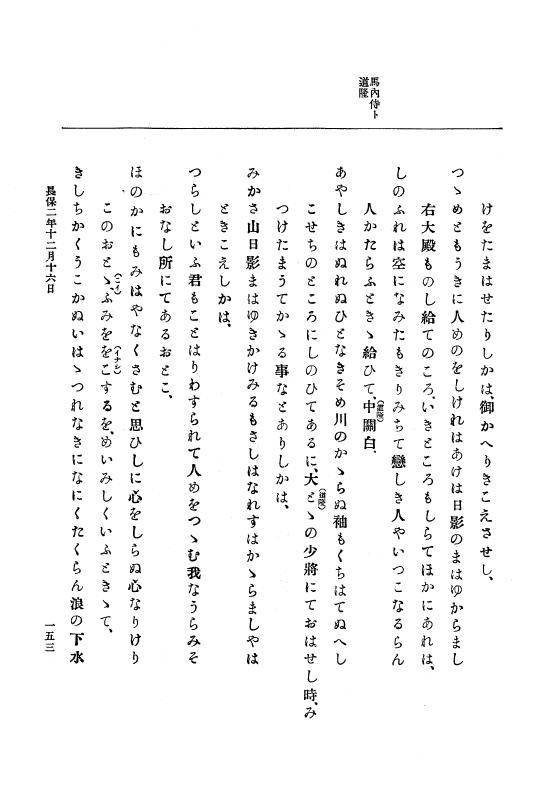 馬內侍ト
道隆
けをたまはせたりしかは、御かへりきこえさせし、
つゝめともうきに人めのをしけれはあけは日影のまはゆからまし
右大殿ものし給てのころ、いきところもしらてほかにあれは、
しのふれは空になみたもきりみちて戀しき人やいつこなるらん
人かたらふときゝ給ひて、中關白、
(道隆)
あやしきはぬれぬひとなきそめ川のかゝらぬ袖もくちはてぬへし
こせちのところにしのひてあるに、大とゝの少將にておはせし時、み
(道隆)
つけたまうてかゝる事なとありしかは、
みかさ山日影まはゆきかけみるもさしはなれすはかゝらましやは
ときこえしかは、
つらしといふ君もことはりわすられて人めをつゝむ我なうらみそ
おなし所にてあるおとこ、
ほのかにもみはやなくさむと思ひしに心をしらぬ心なりけり
このおとゝ、ふみををこするを、めいみしくいふときゝて、
きしちかくうこかぬいはゝつれなきになにくたくらん浪の下水
長保二年十二月十六日
一五三